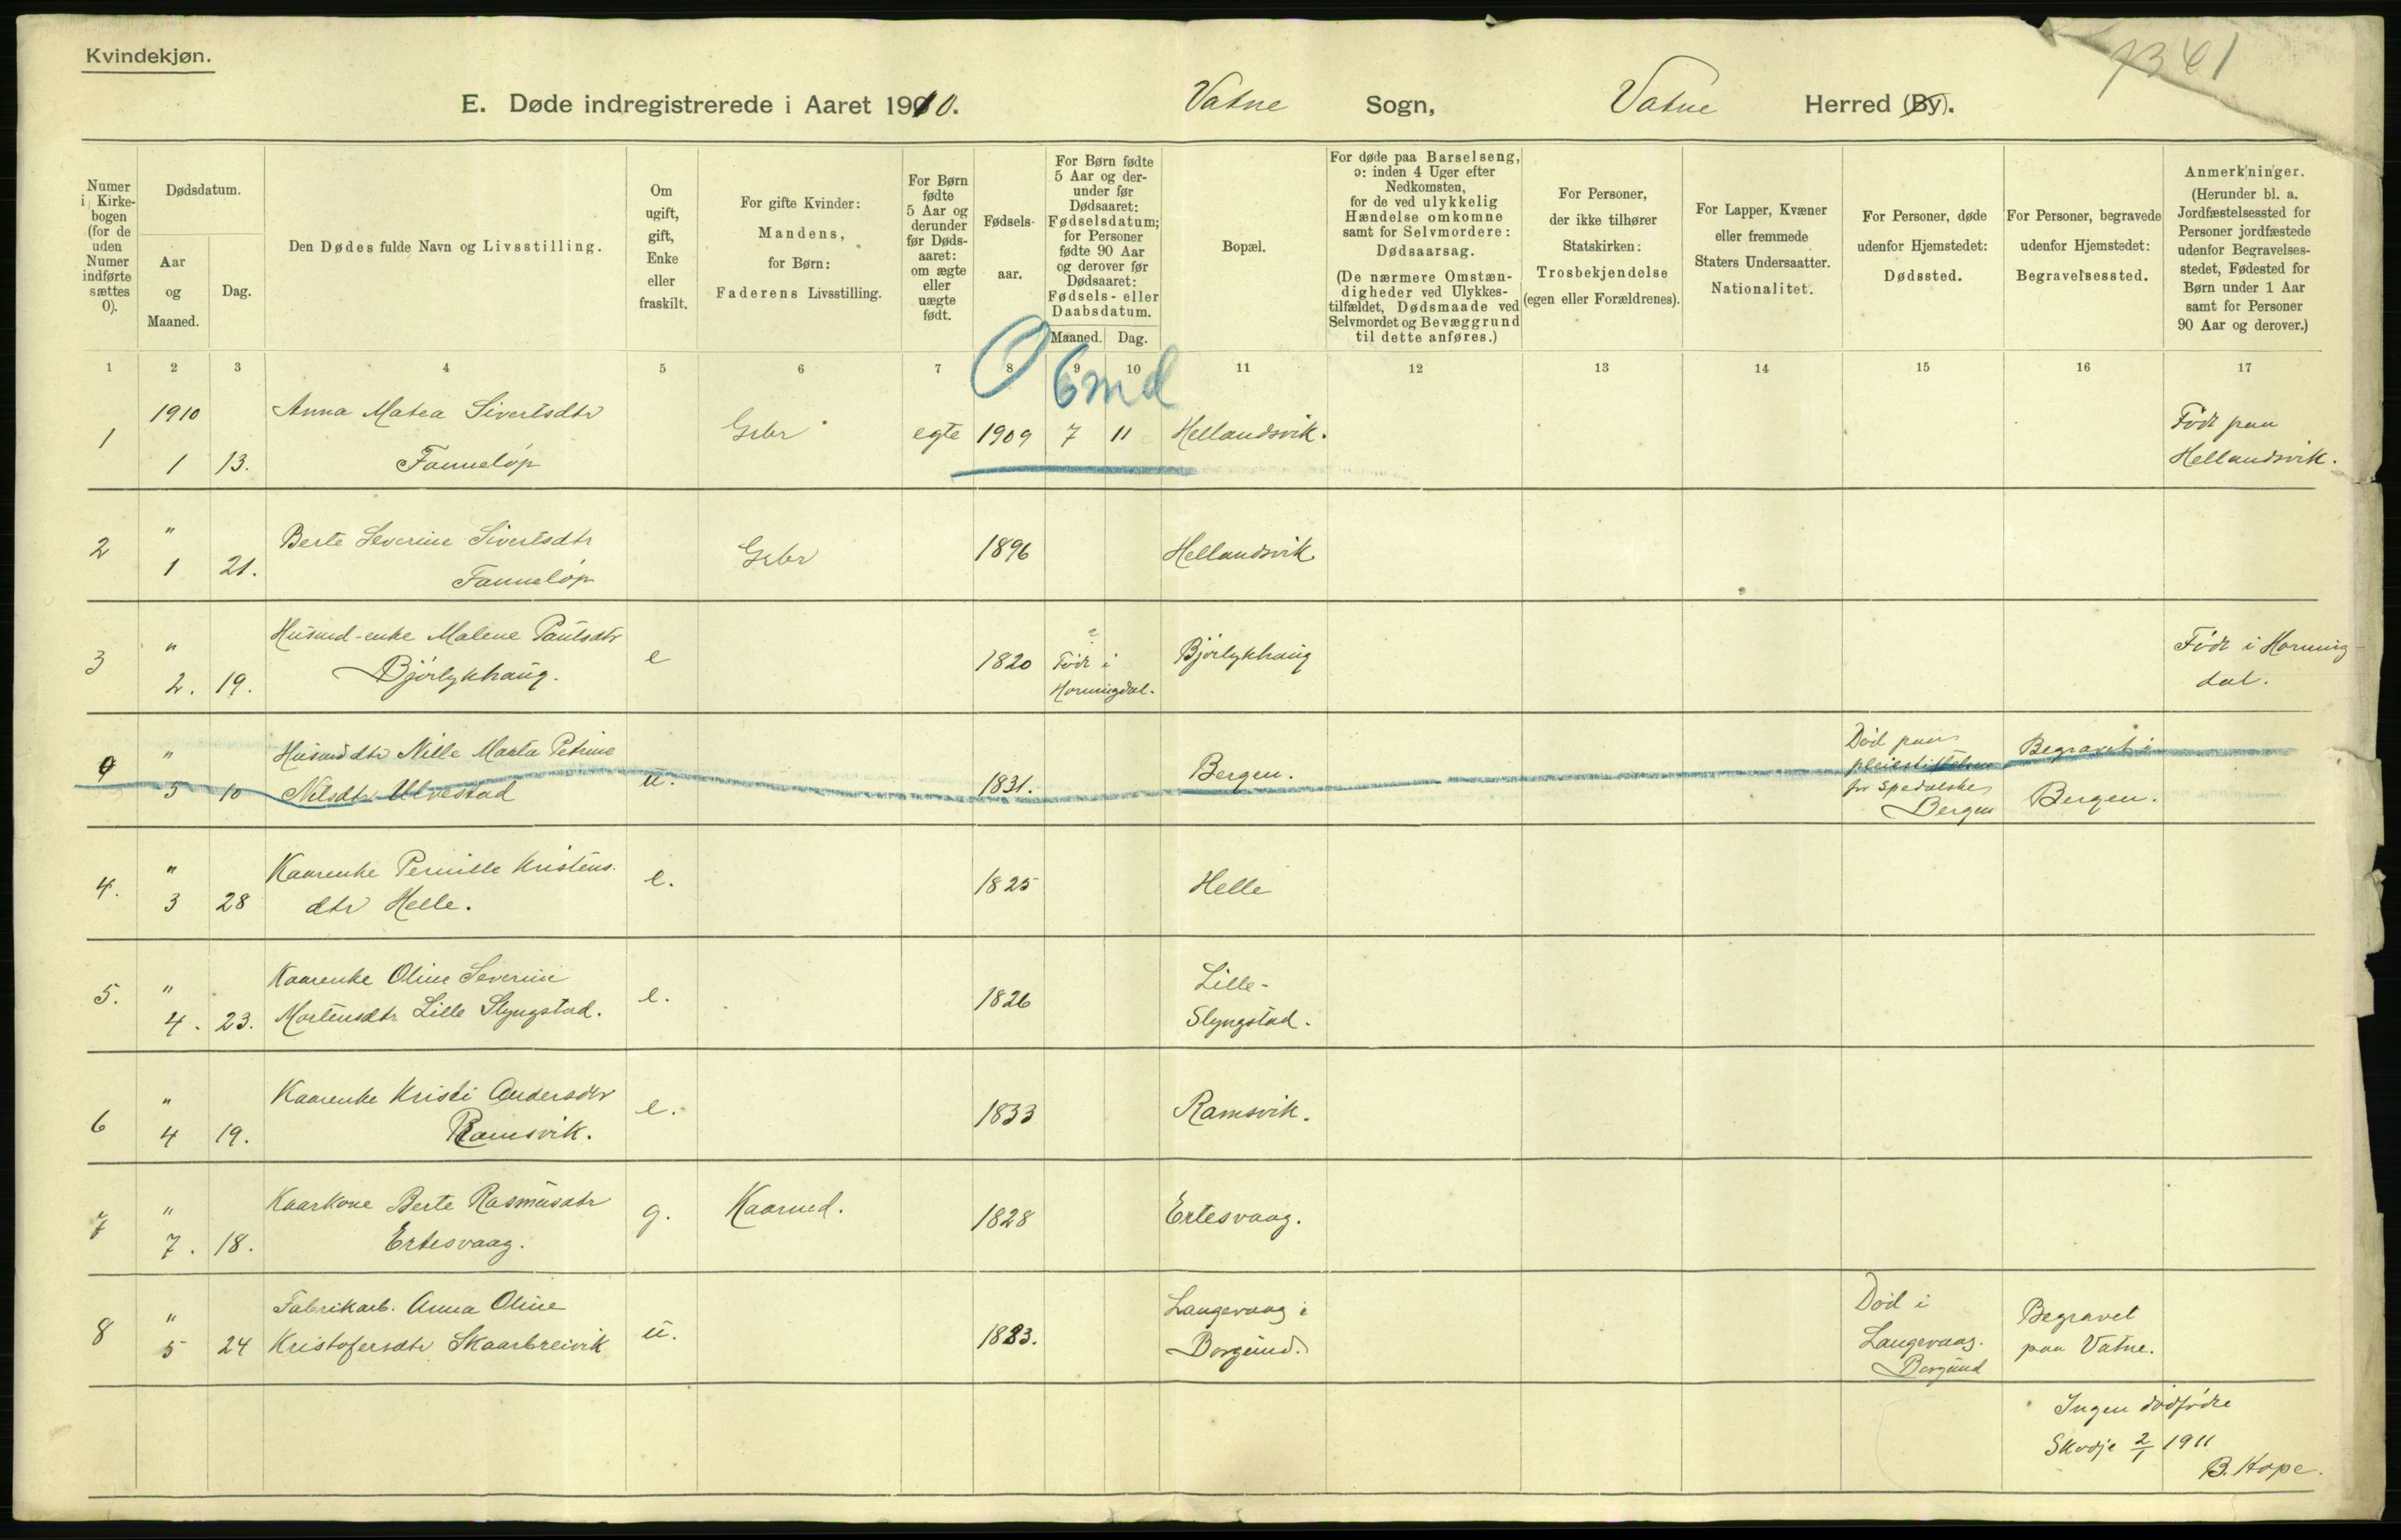 Kvindekjøn.
1341
E. Døde indregistrerede i Aaret 1910. Vatne Sogn, Vatne Herred (By).
Numer i Kirke-bogen (for de uden Numer indførte sættes 0).
Dødsdatum.
Aar og Maaned.
Dag.
Den Dødes fulde Navn og Livsstilling.
Om ugift, gift, Enke eller fraskilt.
For gifte Kvinder: Mandens, for Børn: Faderens Livsstilling.
For Børn fødte 5 Aar og derunder før Døds-aaret: om ægte eller uægte født.
Fødsels-aar.
For Børn fødte 5 Aar og der-under før Dødsaaret: Fødselsdatum; for Personer fødte 90 Aar og derover før Dødsaaret: Fødsels- eller Daabsdatum.
Maaned. Dag.
Bopæl.
For døde paa Barselseng, ɔ: inden 4 Uger efter Nedkomsten, for de ved ulykkelig Hændelse omkomne samt for Selvmordere: Dødsaarsag.
(De nærmere Omstæn-digheder ved Ulykkes-tilfældet, Dødsmaade ved Selvmordet og Bevæggrund til dette anføres.)
For Personer, der ikke tilhører Statskirken: Trosbekjendelse (egen eller Forældrenes).
For Lapper, Kvæner eller fremmede Staters Undersaatter. Nationalitet.
For Personer, døde udenfor Hjemstedet: Dødssted.
For Personer, begravede udenfor Hjemstedet: Begravelsessted.
Anmerkninger.
(Herunder bl. a. Jordfæstelsessted for Personer jordfæstede udenfor Begravelses-stedet, Fødested for Børn under 1 Aar samt for Personer 90 Aar og derover.)
1 2 3 4 5 6 7 8 9 10 11 12 13 14 15 16 17
0 6 md
1 1910 1 13. Anna Matea Sivertsdtr Fanneløp Gbr egte 1909 7 11 Hellandsvik. Født paa Hellandsvik.
2 " 1 21. Berte Severine Sivertsdtr Fanneløp Gbr 1896 Hellandsvik
3 " 2. 19. Husmd-enke Malene Paulsdtr Bjørlykhaug. e 1820 ? Født i Horningdal. Bjørlykhaug Født i Horning-dal.
0 " 5 10 Husmddtr Nille Marta Petrine Nilsdtr Ulvestad u. 1831. Bergen. Død paa pleiestiftelsen for spedalske Bergen Begravet i Bergen.
4. " 3 28 Kaarenke Pernille Kristens. dtr Helle. e. 1825 Helle
5. " 4. 23. Kaarenke Oline Severine Mortensdtr Lille Slyngstad. e. 1826 Lille-Slyngstad.
6 " 4 19. Kaarenke Kristi Andersdtr Ramsvik. e. 1833 Ramsvik.
7 " 7. 18. Kaarkone Berte Rasmusdtr Ertesvaag. g. Kaarmd. 1828 Ertesvaag.
8 " 5 24 Fabrikarb. Anna Oline Kristofersdtr Skaarbreivik u. 1883. Langevaag i Borgund. Død i Langevaag. Borgund Begravet paa Vatne.
Ingen dødfødte
Skodje 2/1 1911
B. Hope.